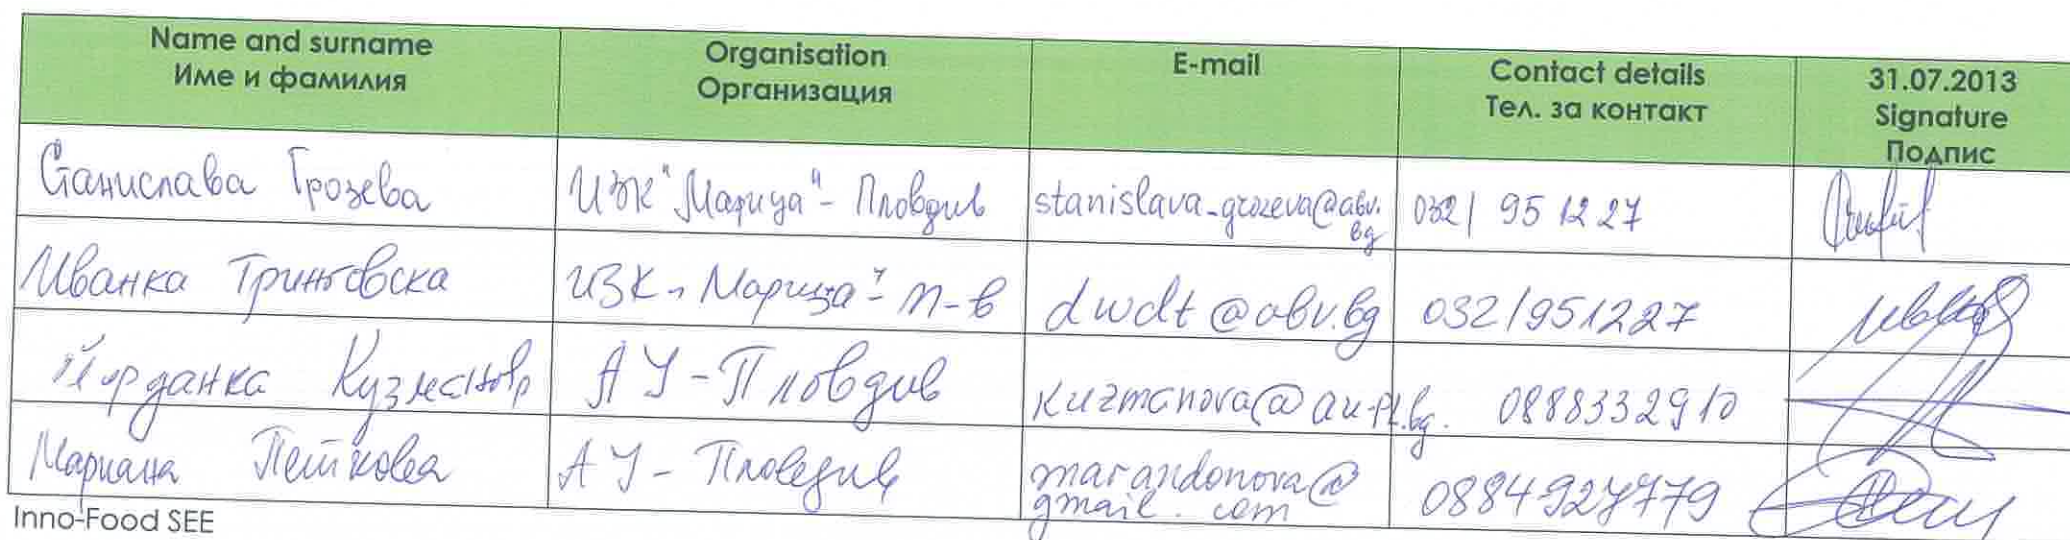 Name and surname
Име и фамилия
Organisation
Организация
E-mail
Contact details
Тел. за контакт
31.07.2013
Signature
Подпис
Станислава Грозева
ИЗК "Марица" - Пловдив
stanislava_grozeva@abv.
bg
032/ 95 12 27
Иванка Тринговска
ИЗК „Марица" - П-в
dwdt@abv.bg
032/951227
Йорданка Кузманова
АУ - Пловдив
kuzmanova@au-pl.bg.
0888332910
Мариана Петкова
АУ - Пловдив
marandonova@
gmail.com
0884927779
Inno-Food SEE